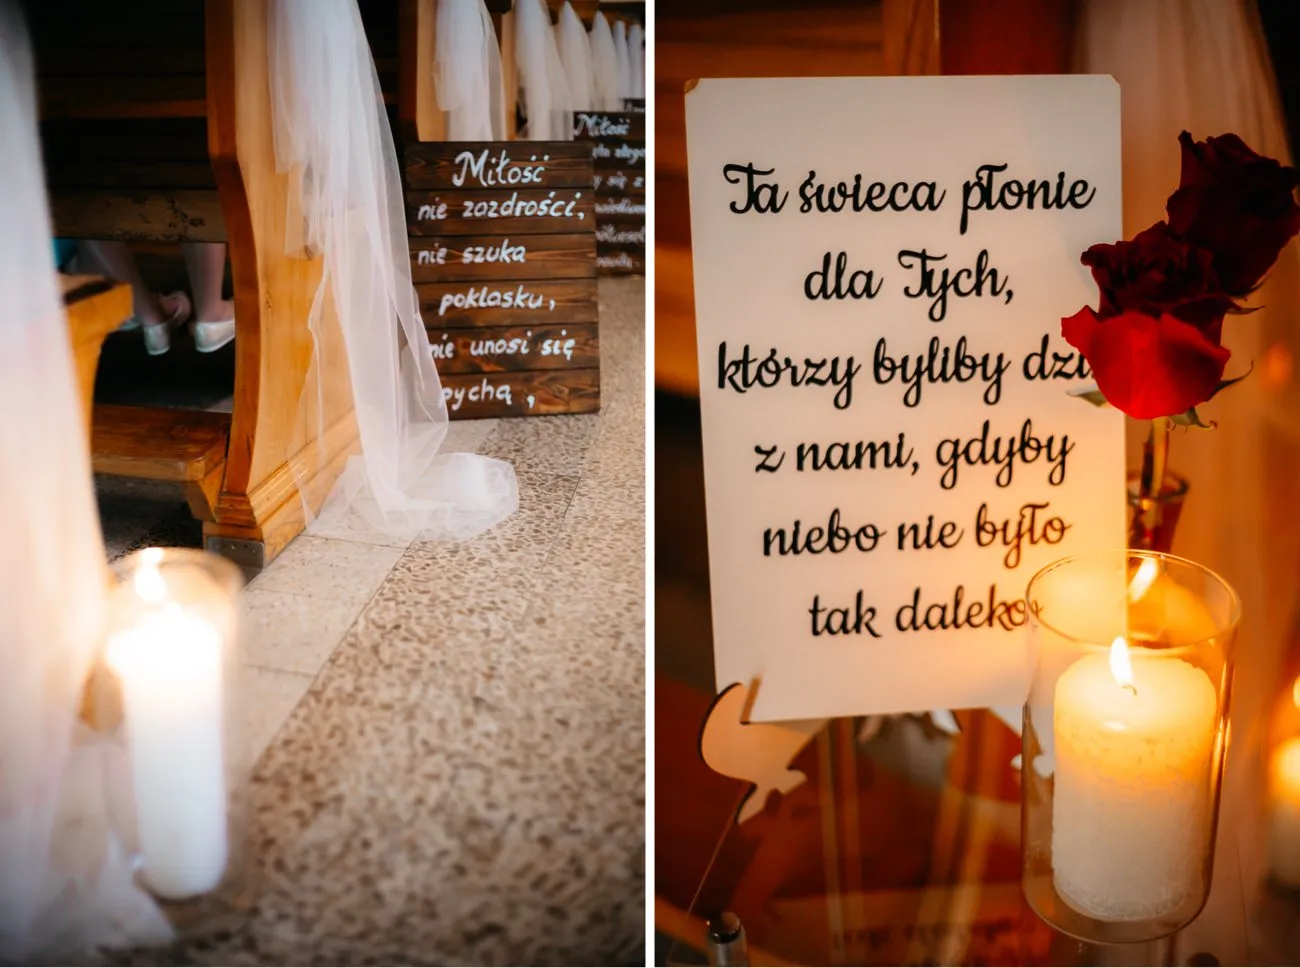 Miłość
nie zazdrości,
nie szuka
poklasku,
nie unosi się
pychą,
Miłość
Ta świeca płonie
dla Tych,
którzy byliby
z nami, gdyby
niebo nie było
tak daleko